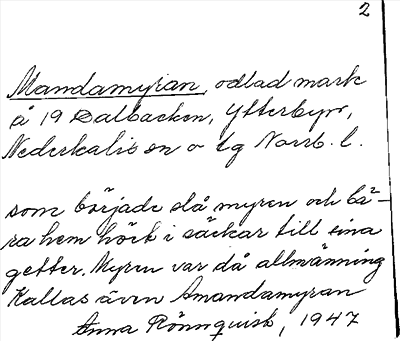 2
Mandamyran, odlad mark
på 19 Dalbacken, Ytterbyn,
Nederkalix sn o tg Norrb. l.
som började slå myren och bä-
ra hem höet i säckar till sina
getter. Myren var då allmänning
Kallas även Amandamyran
Anna Rönnquist, 1947